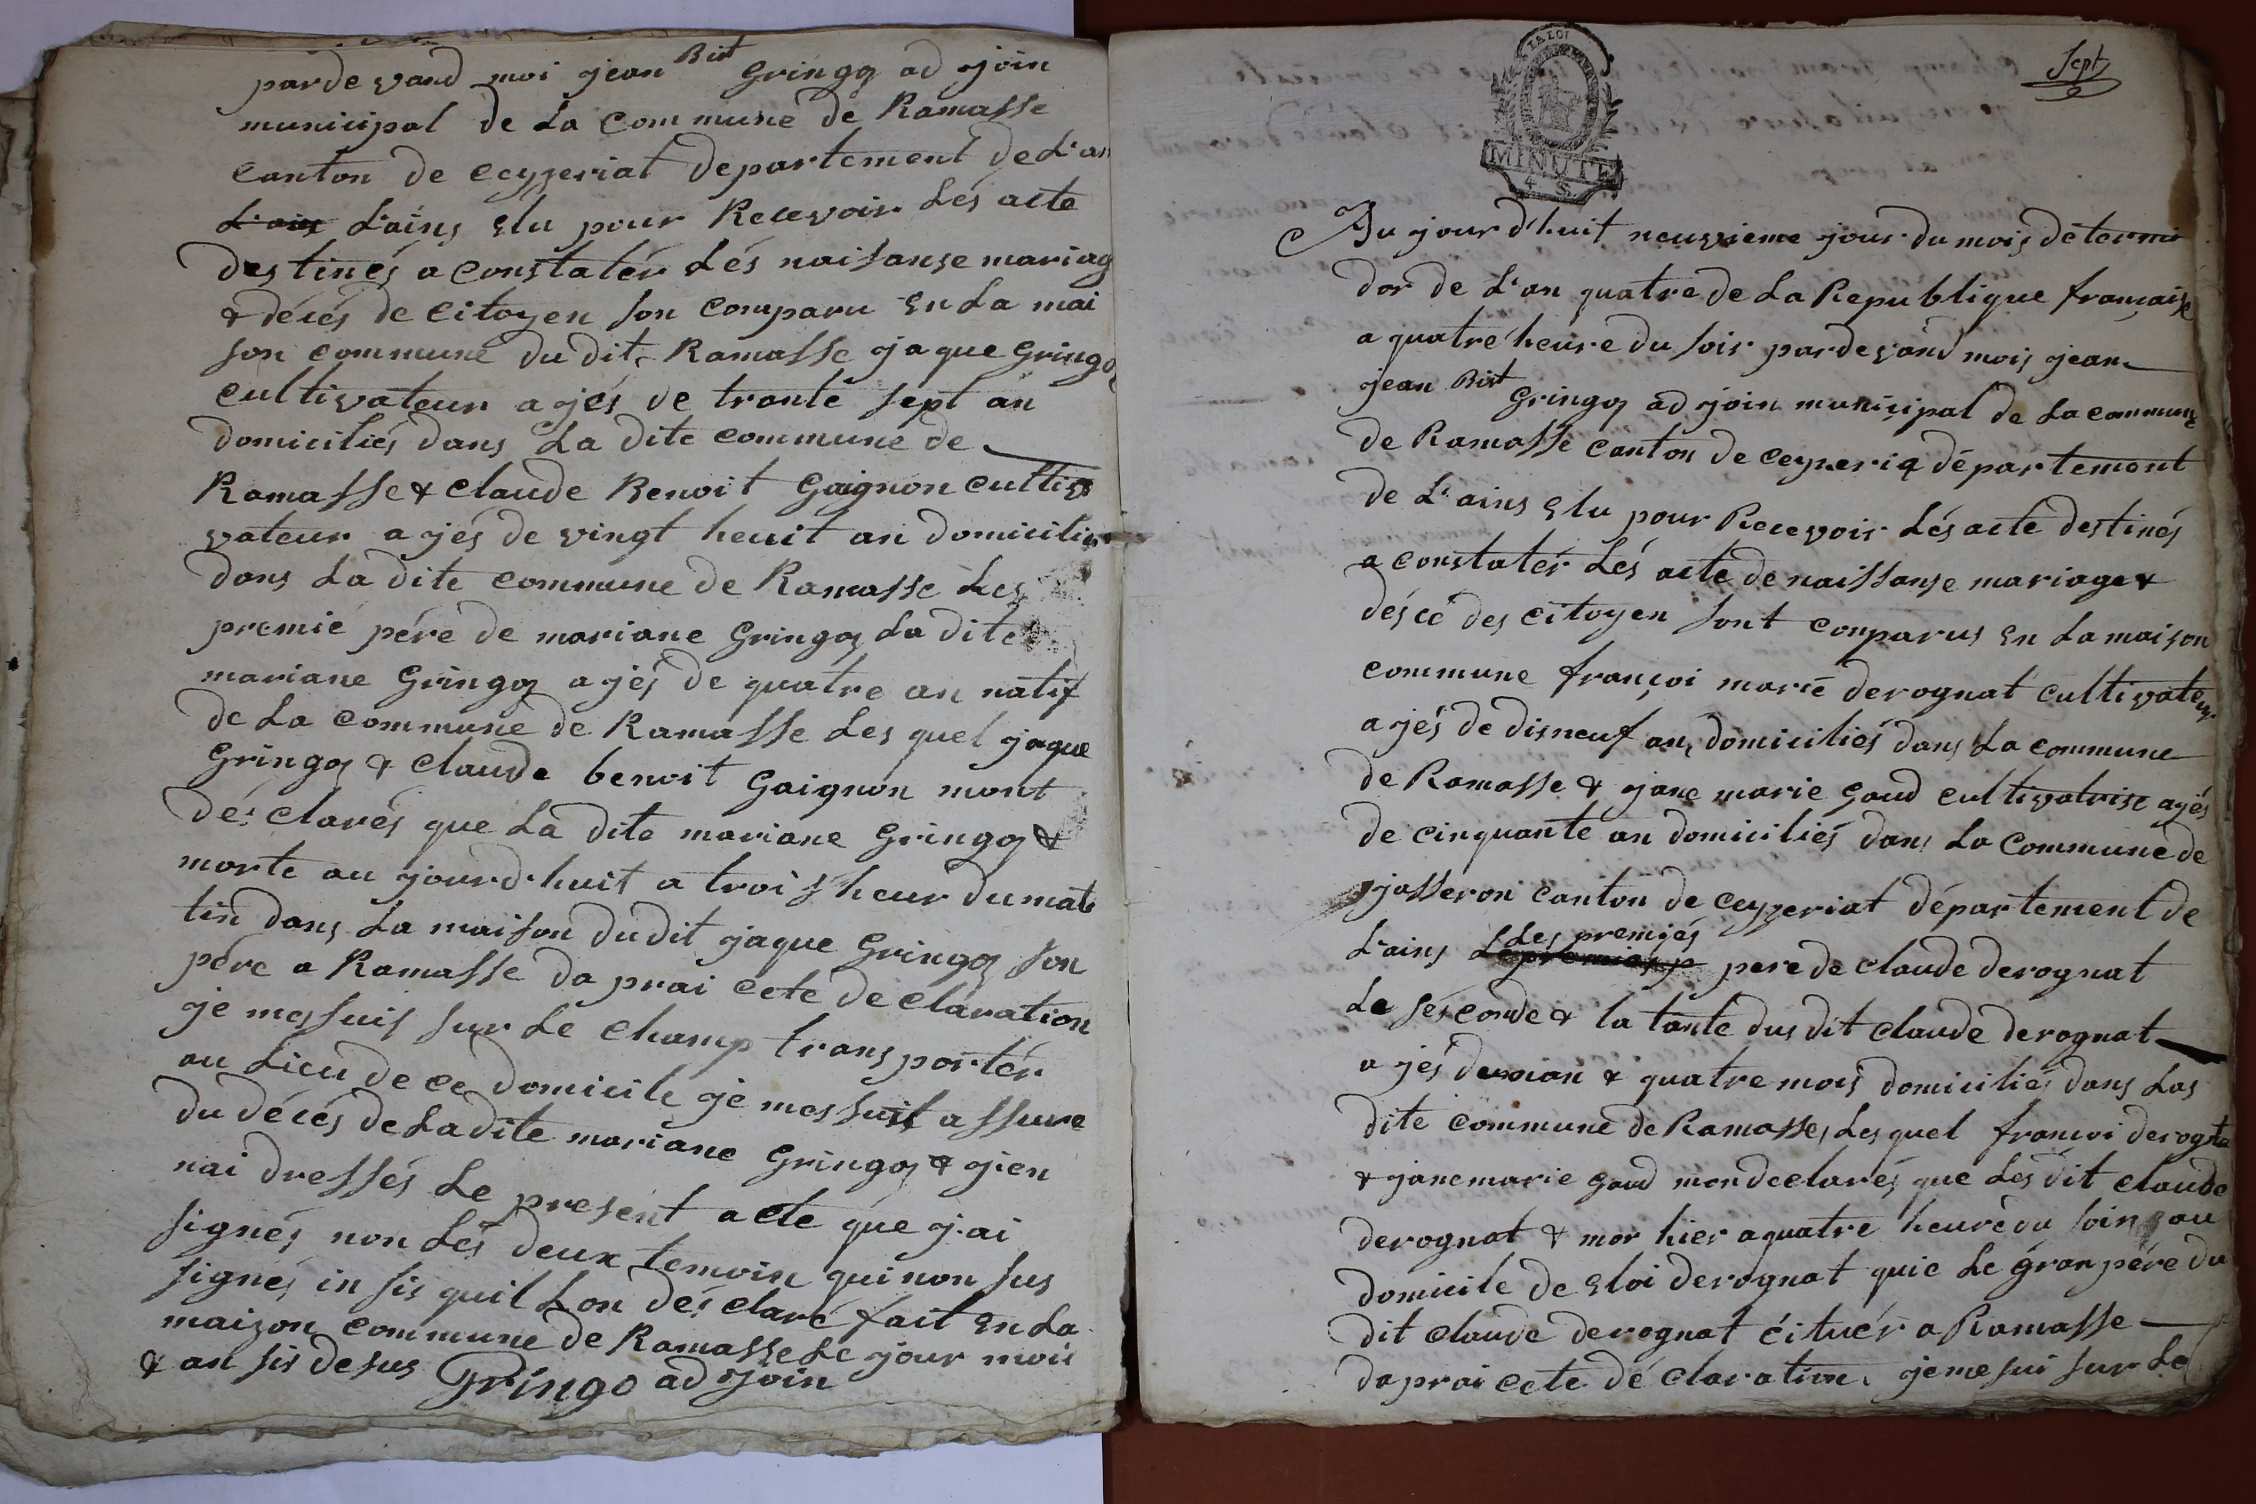 parde vand moi jean Bist Gringoz ad join
municipal de La commune de Ramasse
canton de ceyzeriat departement de L'an
L'ain L'ains élu pour Recevoir Lés acte
destinés a constatér Lés naisanse mariag
& décés de citoyen son comparu En La mai
son commune du dit Ramasse jaque Gringoz
cultivateur agés de trante sept an
domiciliés dans La dite commune de
Ramasse & claude Benoit Gaignon cultiv
vateur agés de vingt heuit an domicilié
dans La dite commune de Ramasse Les
premié pére de mariane Gringoz La dite
mariane Gringoz agés de quatre an natif
de La commune de Ramasse Les quel jaque
Gringoz & claude benoit Gaignon mont
déclarés que La dite mariane Gringoz &
morte au jourd'huit a trois heur du mat
tin dans La maison du dit jaque Gringoz son
pére a Ramasse da prai cete declaration
je me suis sur Le champ transportér
au Lieu de ce domicile je me suis assure
du décés de La dite mariane Gringoz & j'en
nai dressés Le present acte que j'ai
signés non Lés deux temoin qui non sus
signés in sis quil Lon désclaré fait En La
maizon commune de Ramasse Le jour mois
& an sis desus Gringo ad join
Sept
LA LOI
MINUTE
4 S.
Au jourd'huit neuvieme jour du mois dé termi
dor de L'an quatre de La Republique française
a quatre heure du soir pardevand mois jean
jean Bist Gringoz ad join municipal de La commune
de Ramasse canton de ceyzeria département
de L'ains élu pour Recevoir Lés acte destinés
a constatér Lés acte de naissanse mariage &
déscé des citoyen sont conparus En La maison
commune françoi marie derognat cultivateur
agés de disneuf an, domiciliés dans La commune
de Ramasse & jane marie gaud cultivatrise agés
de cinquante an domiciliés dans La Commune de
jasseron canton de ceyzeriat département de
L'ains Les premiés pere de claude derognat
La séconde & la tante dus dit claude derognat
agés dun an & quatre mois domiciliés dans Las
dite commune de Ramasse, Les quel françoi derognta
& jane marie gaud mon declarés que Lés dit claude
derognat & mor hier a quatre heure du soir au
domicile de Eloi derognat quie Le gran pére du
dit claude derognat éituér a Ramasse
da prai cete déclaration je me sui sur Le